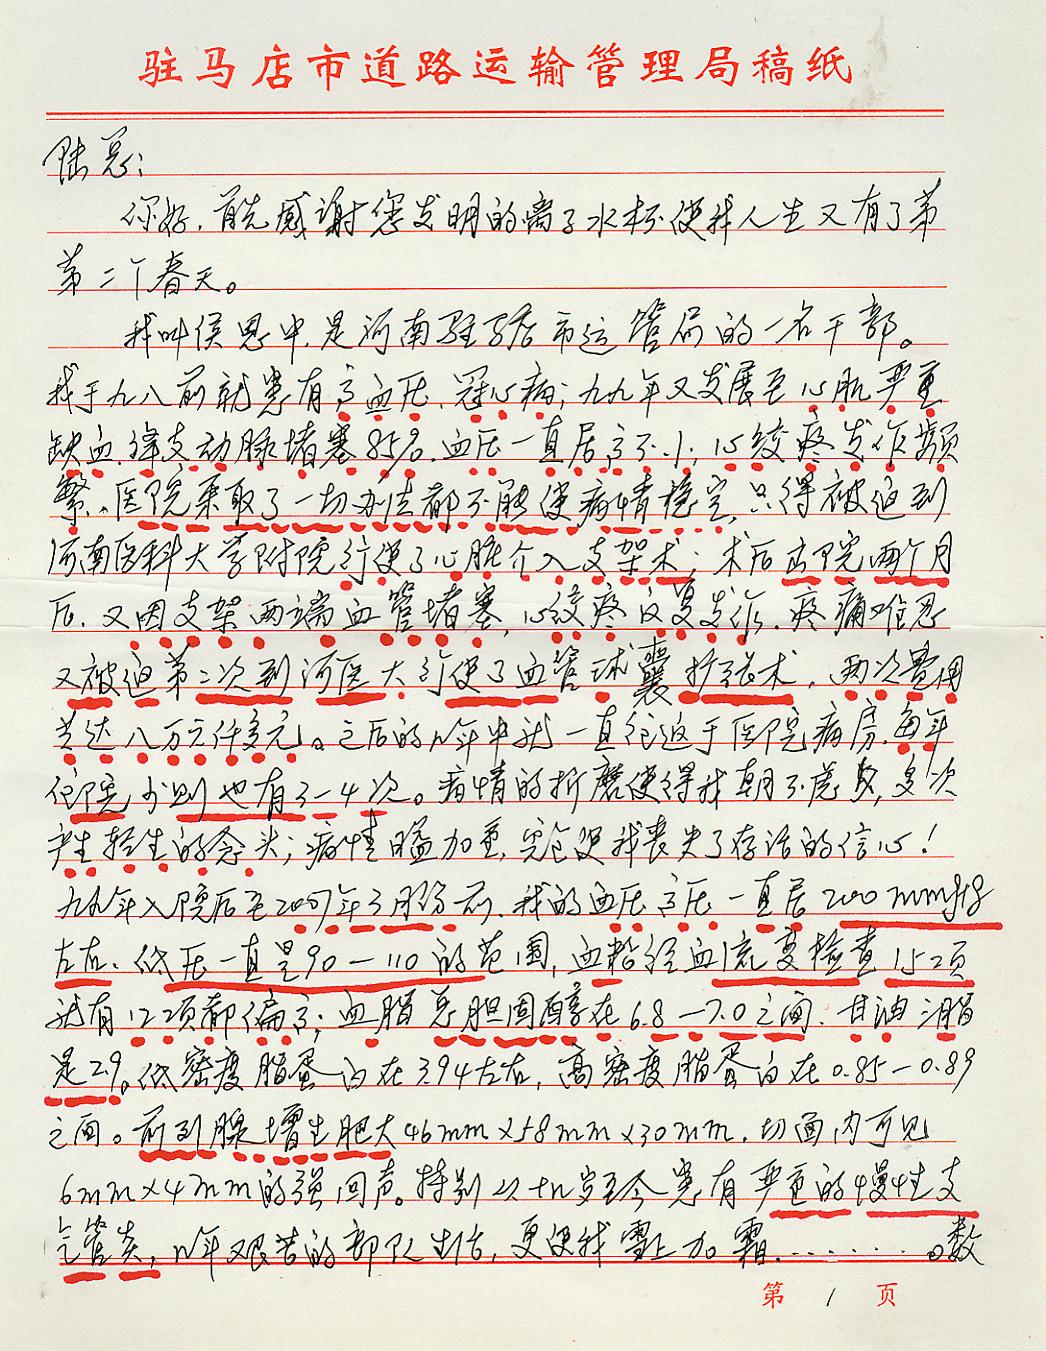 驻马店市道路运输管理局稿纸
陆总:
你好,首先感谢您发明的离子水杯使我人生又有了第
第二个春天。
我叫侯恩中,是河南驻马店市运管局的一名干部。
我于九八前就患有高血压、冠心病;九九年又发展至心肌严重
缺血,绛支动脉堵塞85%.血压一直居高不下,心绞疼发作频
繁。医院采取了一切办法都不能使病情稳定,只得被迫到
河南医科大学附院行使了心脏介入支架术;术后出院两个月
后,又因支架两端血管堵塞,心绞疼反复发作.疼痛难忍
又被迫第二次到河医大行使了血管球囊扩张术,两次费用
共达八万元仟多元。之后的几年中就一直往返于医院病房.每年
住院少则也有3—4次。病情的折磨使得我朝不虑夕,多次
产生轻生的念头;病情日益加重,完全使我丧失了存活的信心!
九九年入院后至2007年3月份前.我的血压高压一直居200mmHg
左右、低压一直是90—110的范围,血粘经血流变检查15项
就有12项都偏高;血脂总胆固醇在6.8—7.0之间.甘油三脂
是2.9。低密度脂蛋白在3.94左右,高密度脂蛋白在0.85—0.89
之间。前列腺增生肥大46mm×58mm×30mm.切面内可见
6mm×4mm的强回声。特别以十几岁至今患有严重的慢性支
气管炎,几年艰苦的部队生活,更使我雪上加霜.......。数
第 1 页